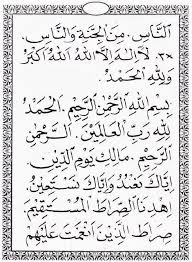 اَلنَّاسِ. مِنَ الْجِنَّةِ وَالنَّاسِ.
٣٨. لَا اِلٰهَ اِلَّا اللهُ اَللهُ اَكْبَرُ
وَلِلّٰهِ الْحَمْدُ.
بِسْمِ اللهِ الرَّحْمٰنِ الرَّحِيْمِ. اَلْحَمْدُ
لِلّٰهِ رَبِّ الْعَالَمِيْنَ. اَلرَّحْمٰنِ
الرَّحِيْمِ. مَالِكِ يَوْمِ الدِّيْنِ.
اِيَّاكَ نَعْبُدُ وَاِيَّاكَ نَسْتَعِيْنُ
اِهْدِنَا الصِّرَاطَ الْمُسْتَقِيْمَ.
صِرَاطَ الَّذِيْنَ اَنْعَمْتَ عَلَيْهِمْ